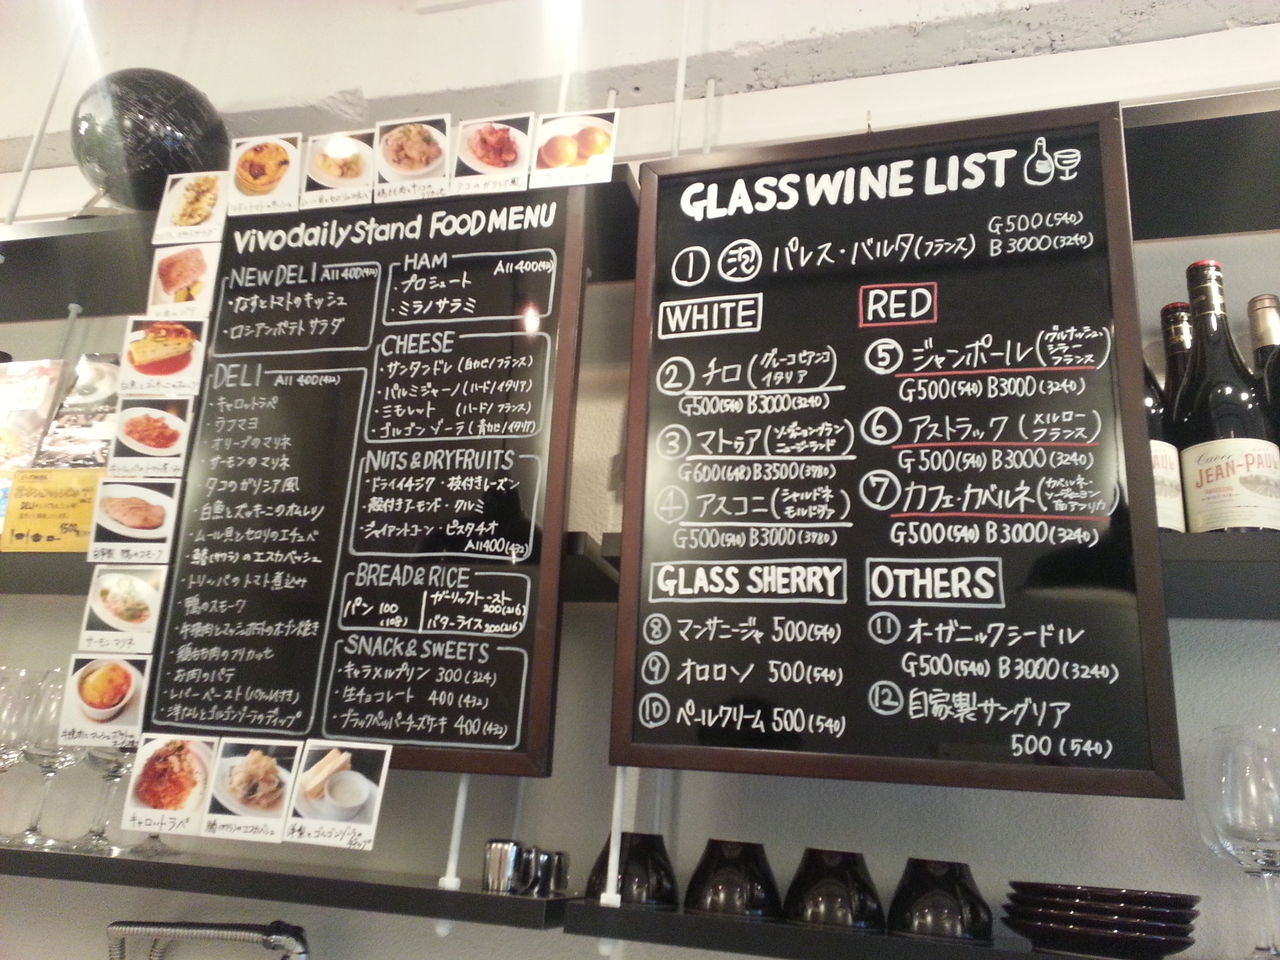 vivo daily stand FOOD MENU
NEW DELI All 400(432)
・なすとトマトのキッシュ
・ロシアンポテトサラダ
DELI All 400(432)
・キャロットラペ
・ウフマヨ
・オリーブのマリネ
・サーモンのマリネ
・タコのガリシア風
・白魚とズッキーニのオムレツ
・ムール貝とセロリのエチュベ
・鰆(サワラ)のエスカベッシュ
・トリッパのトマト煮込み
・鴨のスモーク
・牛挽肉とマッシュポテトのオーブン焼き
・鶏もも肉のフリカッセ
・お肉のパテ
・レバーペースト(バケット付き)
・洋なしとゴルゴンゾーラのディップ
HAM All 400(432)
・プロシュート
・ミラノサラミ
CHEESE
・サンタンドレ(白カビ/フランス)
・パルミジャーノ(ハード/イタリア)
・ミモレット (ハード/フランス)
・ゴルゴンゾーラ(青カビ/イタリア)
NUTS&DRYFRUITS
・ドライイチジク ・枝付きレーズン
・殻付きアーモンド ・クルミ
・ジャイアントコーン ・ピスタチオ
All 400(432)
BREAD&RICE
パン 100 (108)
ガーリックトースト 200(216)
バターライス 200(216)
SNACK&SWEETS
・キャラメルプリン 300(324)
・生チョコレート 400(432)
・ブラックペッパーチーズケーキ 400(432)
GLASS WINE LIST
① 泡 パレス・バルタ(フランス) G500(540) B3000(3240)
WHITE
② チロ(グレーコビアンコ イタリア)
G500(540) B3000(3240)
③ マトゥア(ソーヴィニョンブラン ニュージーランド)
G600(648) B3500(3780)
④ アスコニ(シャルドネ モルドヴァ)
G500(540) B3000(3780)
RED
⑤ ジャンポール(グルナッシュ・シラー フランス)
G500(540) B3000(3240)
⑥ アストラック(メルロー フランス)
G500(540) B3000(3240)
⑦ カフェ・カベルネ(カベルネ・ソーヴィニヨン 南アフリカ)
G500(540) B3000(3240)
GLASS SHERRY
⑧ マンサニージャ 500(540)
⑨ オロロソ 500(540)
⑩ ペールクリーム 500(540)
OTHERS
⑪ オーガニックシードル
G500(540) B3000(3240)
⑫ 自家製サングリア
500(540)
サーモンマリネ
キャロットラペ
JEAN-PAUL